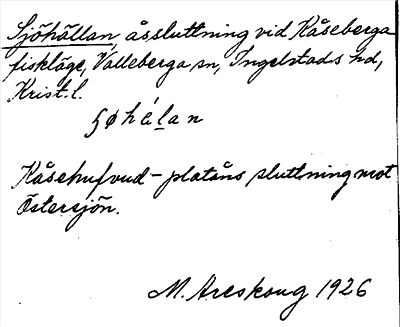 Sjöhällan, åssluttning vid Kåseberga
fiskläge, Valleberga sn, Ingelstads hd,
Krist. l.
ʂøhéḷan
Kåsehufvud-platåns sluttning mot
Östersjön.
M. Areskoug 1926